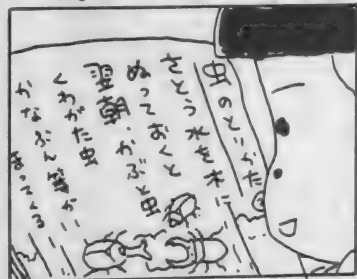 虫のとりかた②
さとう水を木に
ぬっておくと
翌朝・かぶと虫
くわがた虫
かなぶん等が
まってくる